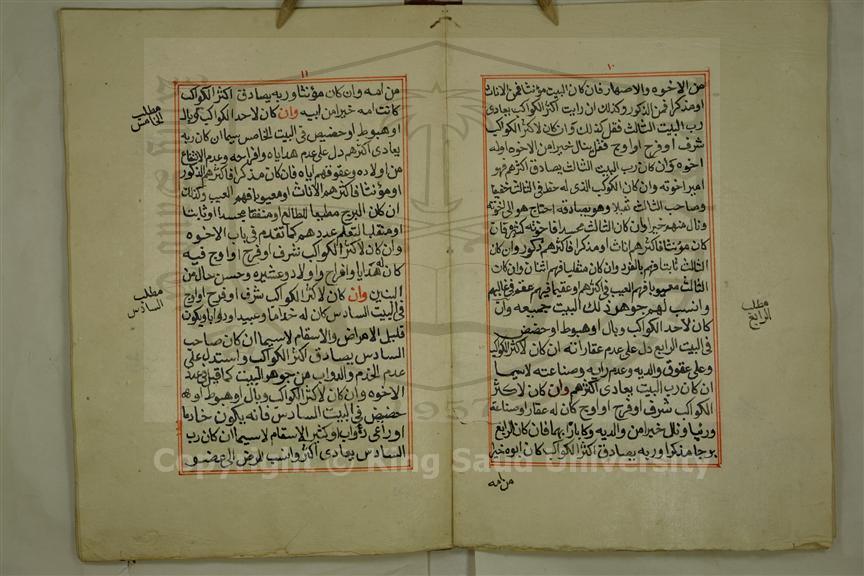 ١٠
من الاخوه والاصهار فان كان البيت مؤنثا فمن الاناث
او مذكرا فمن الذكور وكذلك ان رايت اكثر الكواكب يعادى
رب البيت الثالث فقل كذلك وان كان لاكثر الكواكب
شرف او فرح او اوج فقل ينال خيرا من الاخوه اوله
اخوه وان كان رب البيت الثالث يصادق اكثرهم فهو
امير اخوته وان كان الكواكب الذى له حظ فى الثالث
وصاحب الثالث ثقيلا وهو يصادقه احتاج هو الى اخوته
ونال منهم خيرا وان كان الثالث مجسدا فاخوته كثيرة فان
كان مؤنثا فاكثرهم اناث او مذكرا فاكثرهم ذكور وان كان
الثالث ثابتا فهم بالفرد وان كان منقلبا فهم اثنان وان كان
الثالث معيوبا فهم العيب فى اكثرهم او عقيما فهم عقم فى غالبهم
وانسب لهم جوهر ذلك البيت جميعه وان
كان لاحد الكواكب وبال او هبوط او حضيض
فى البيت الرابع دل على عدم عقاراته ان كان لاكثر الكواكب
وعلى عقوق والديه وعدم رايه وصناعته لاسيما
ان كان رب البيت يعادى اكثرهم وان كان لاكثر
الكواكب شرف او فرح او اوج كان له عقار او صناعة
ونال خيرا من والديه وكابارا بهما فان كان الرابع
برجا مذكرا وربه يصادق اكثر الكواكب كان ابوه خير
من امه
مطلب
الرابع
١١
من امه وان كان مؤنثا وربه يصادق اكثر الكواكب
كانت امه خيرا من ابيه وان كان لاحد الكواكب وبال
او هبوط او حضيض فى البيت الخامس سيما ان كان ربه
يعادى اكثرهم دل على عدم هداياه وافراحه وعدم الانتفاع
من اولاده وعقوقهم اياه فان كان مذكرا فاكثرهم الذكور
او مؤنثا فاكثرهم الاناث او معيوبا فهم العيب وكذلك
ان كان البرج مطيعا للطالع او متفقا مجسدا او ثابتا
او منقلبا لتعلم عددهم كما تقدم فى باب الاخوه
وان كان لاكثر الكواكب شرف او فرح او اوج فيه
كان له هدايا وافراح واولاد وعشيره وحسن حال من
البنين وان كان لاكثر الكواكب شرف او فرح او اوج
فى البيت السادس كان له خداما وعبيد ودوابا ويكون
قليل الامراض والاسقام لاسيما ان كان صاحب
السادس يصادق اكثر الكواكب واستدل على
عدم الخدم والدواب من جوهر البيت كما قيل فى عدد
الاخوه وان كان لاكثر الكواكب وبال او هبوط او
حضيض فى البيت السادس فانه يكون خادما
او راعى دواب او كثير الاسقام لاسيما ان كان رب
السادس يعادى اكثر وانسب المرض الى عضو
مطلب
الخامس
مطلب
السادس
1957
Copyright © King Saud University